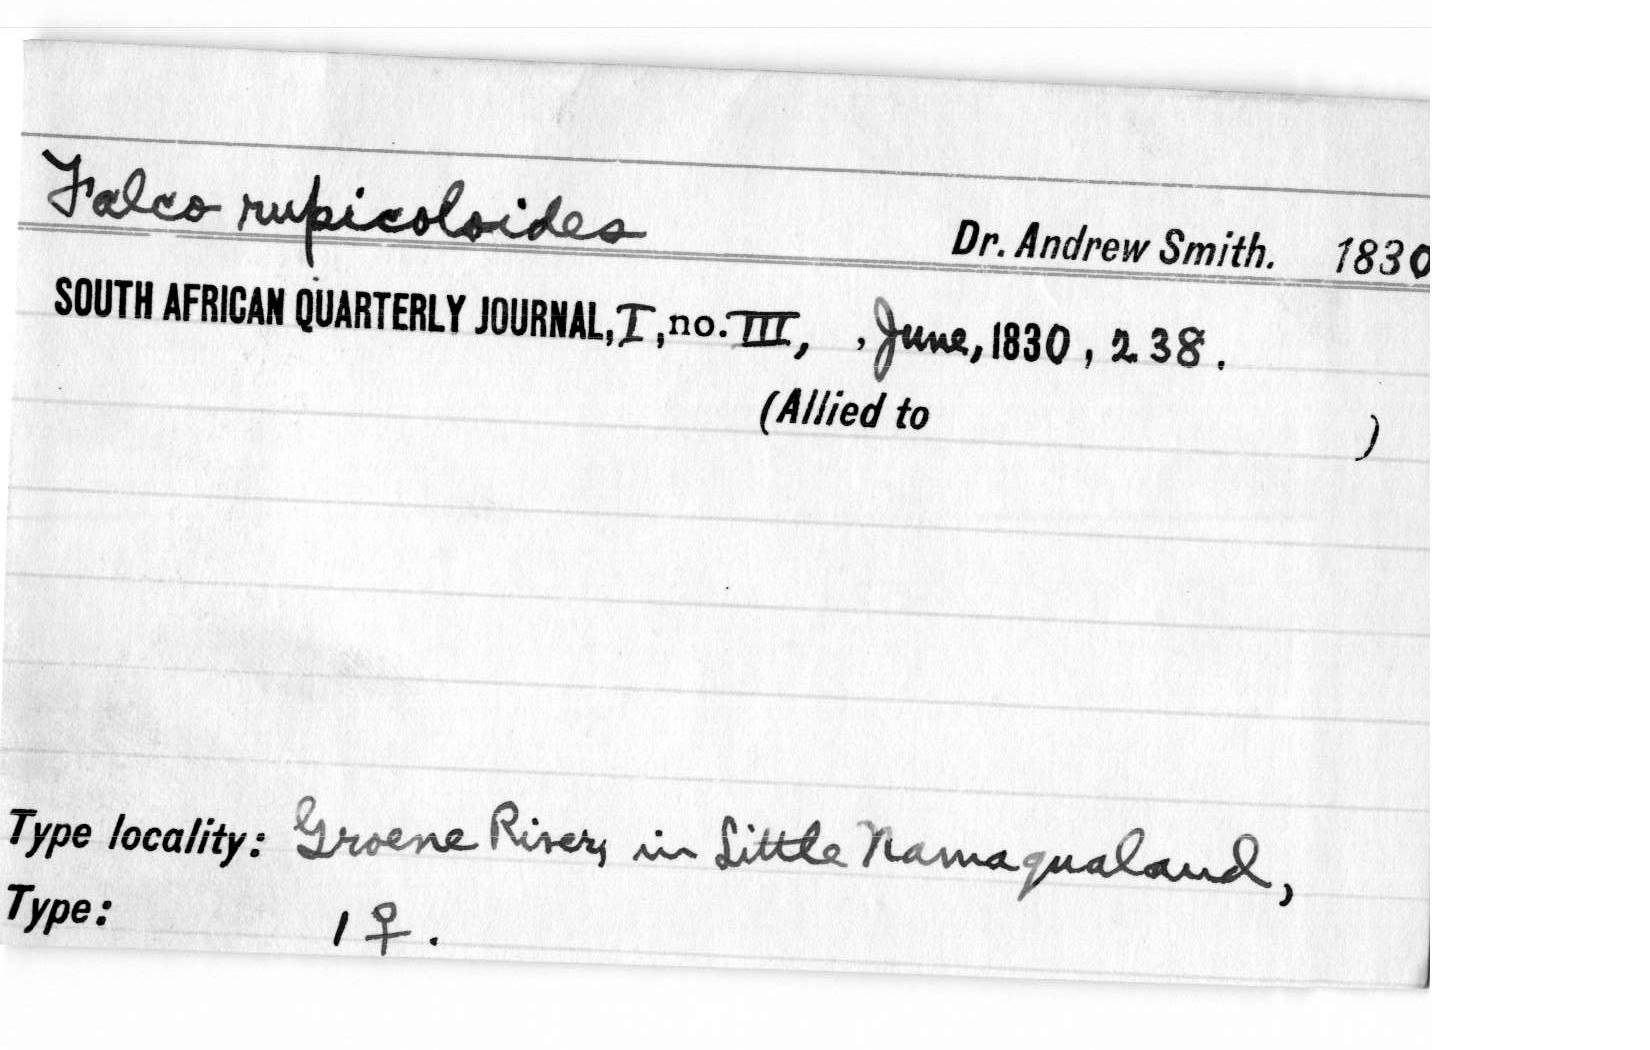 Falco rupicoloides Dr. Andrew Smith. 1830
SOUTH AFRICAN QUARTERLY JOURNAL, I, no. III, , June, 1830, 238.
(Allied to )
Type locality: Groene River, in Little Namaqualand,
Type: 1 ♀.